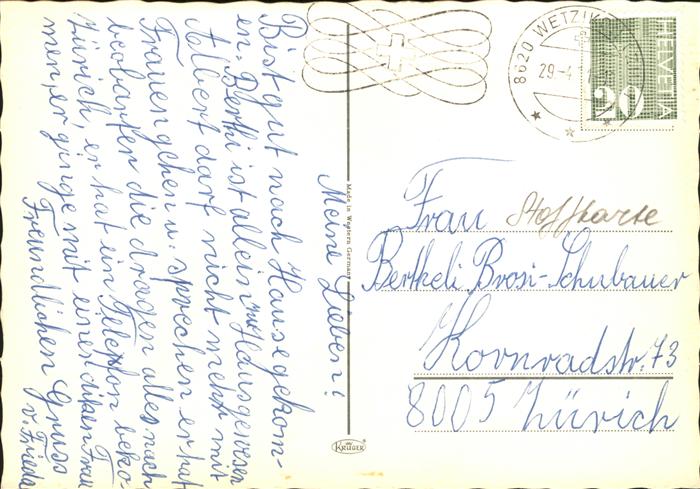 Meine Lieben!
Bist gut nach Hause gekom-
en. Berthi ist allein zu Hause gewesen
Albert darf nicht mehr mit
Frauen gehen u. sprechen er hat
beobarter die drogen alles nach
Zürich, er hat ein Telephon beko-
men, er ginge mit einer diken Frau
Freundlichen Gruss
v. Frieda
Made in Western Germany
KRÜGER
8620 WETZIKON
29.-4.
HELVETIA
20
Frau Stoffkarte
Bertheli Brosi-Schubauer
Kornradstr. 73
8005 Zürich